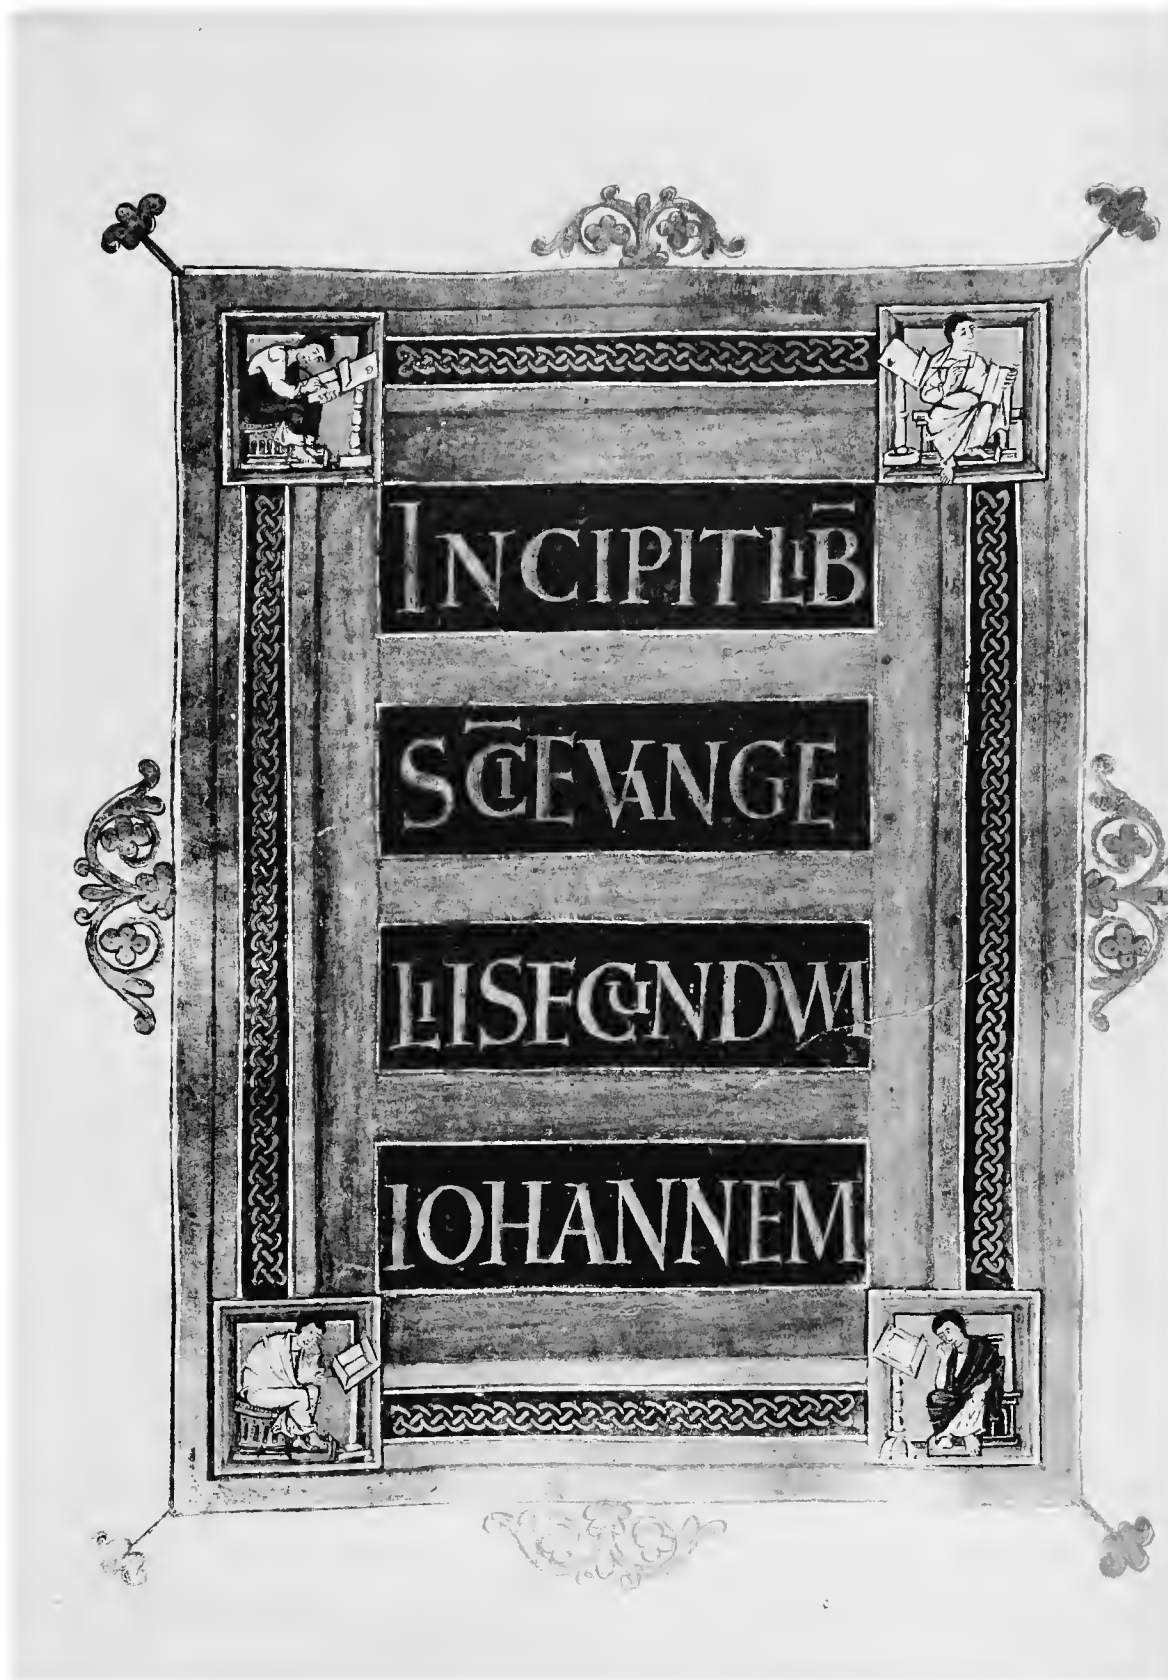 INCIPIT LIB̅
SC̅I EVANGE
LII SECUNDUM
IOHANNEM